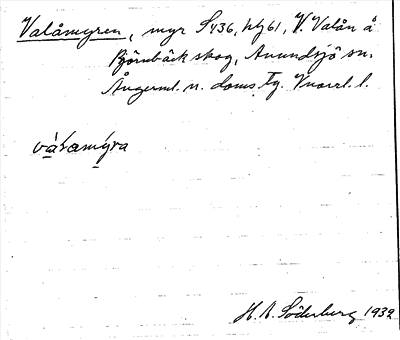 Valåmyren, myr S436, hlg61, V. Valån å
Björnbäck skog, Anundsjö sn.
Ångerml. n. doms. Tg. Vnorrl. l.
våramýra
H. A. Söderberg 1932